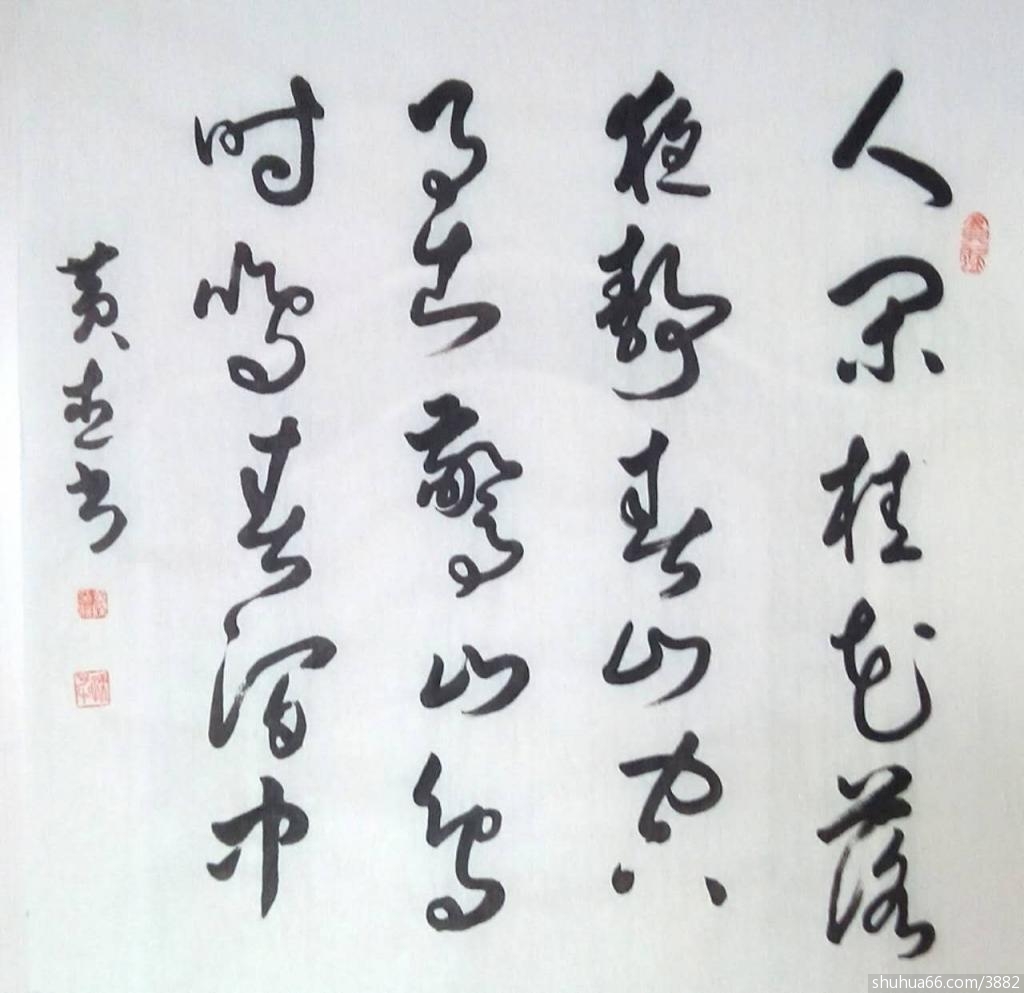 人闲桂花落
夜静春山空
月出驚山鸟
时鸣春涧中
黄书
shuhua66.com/3882